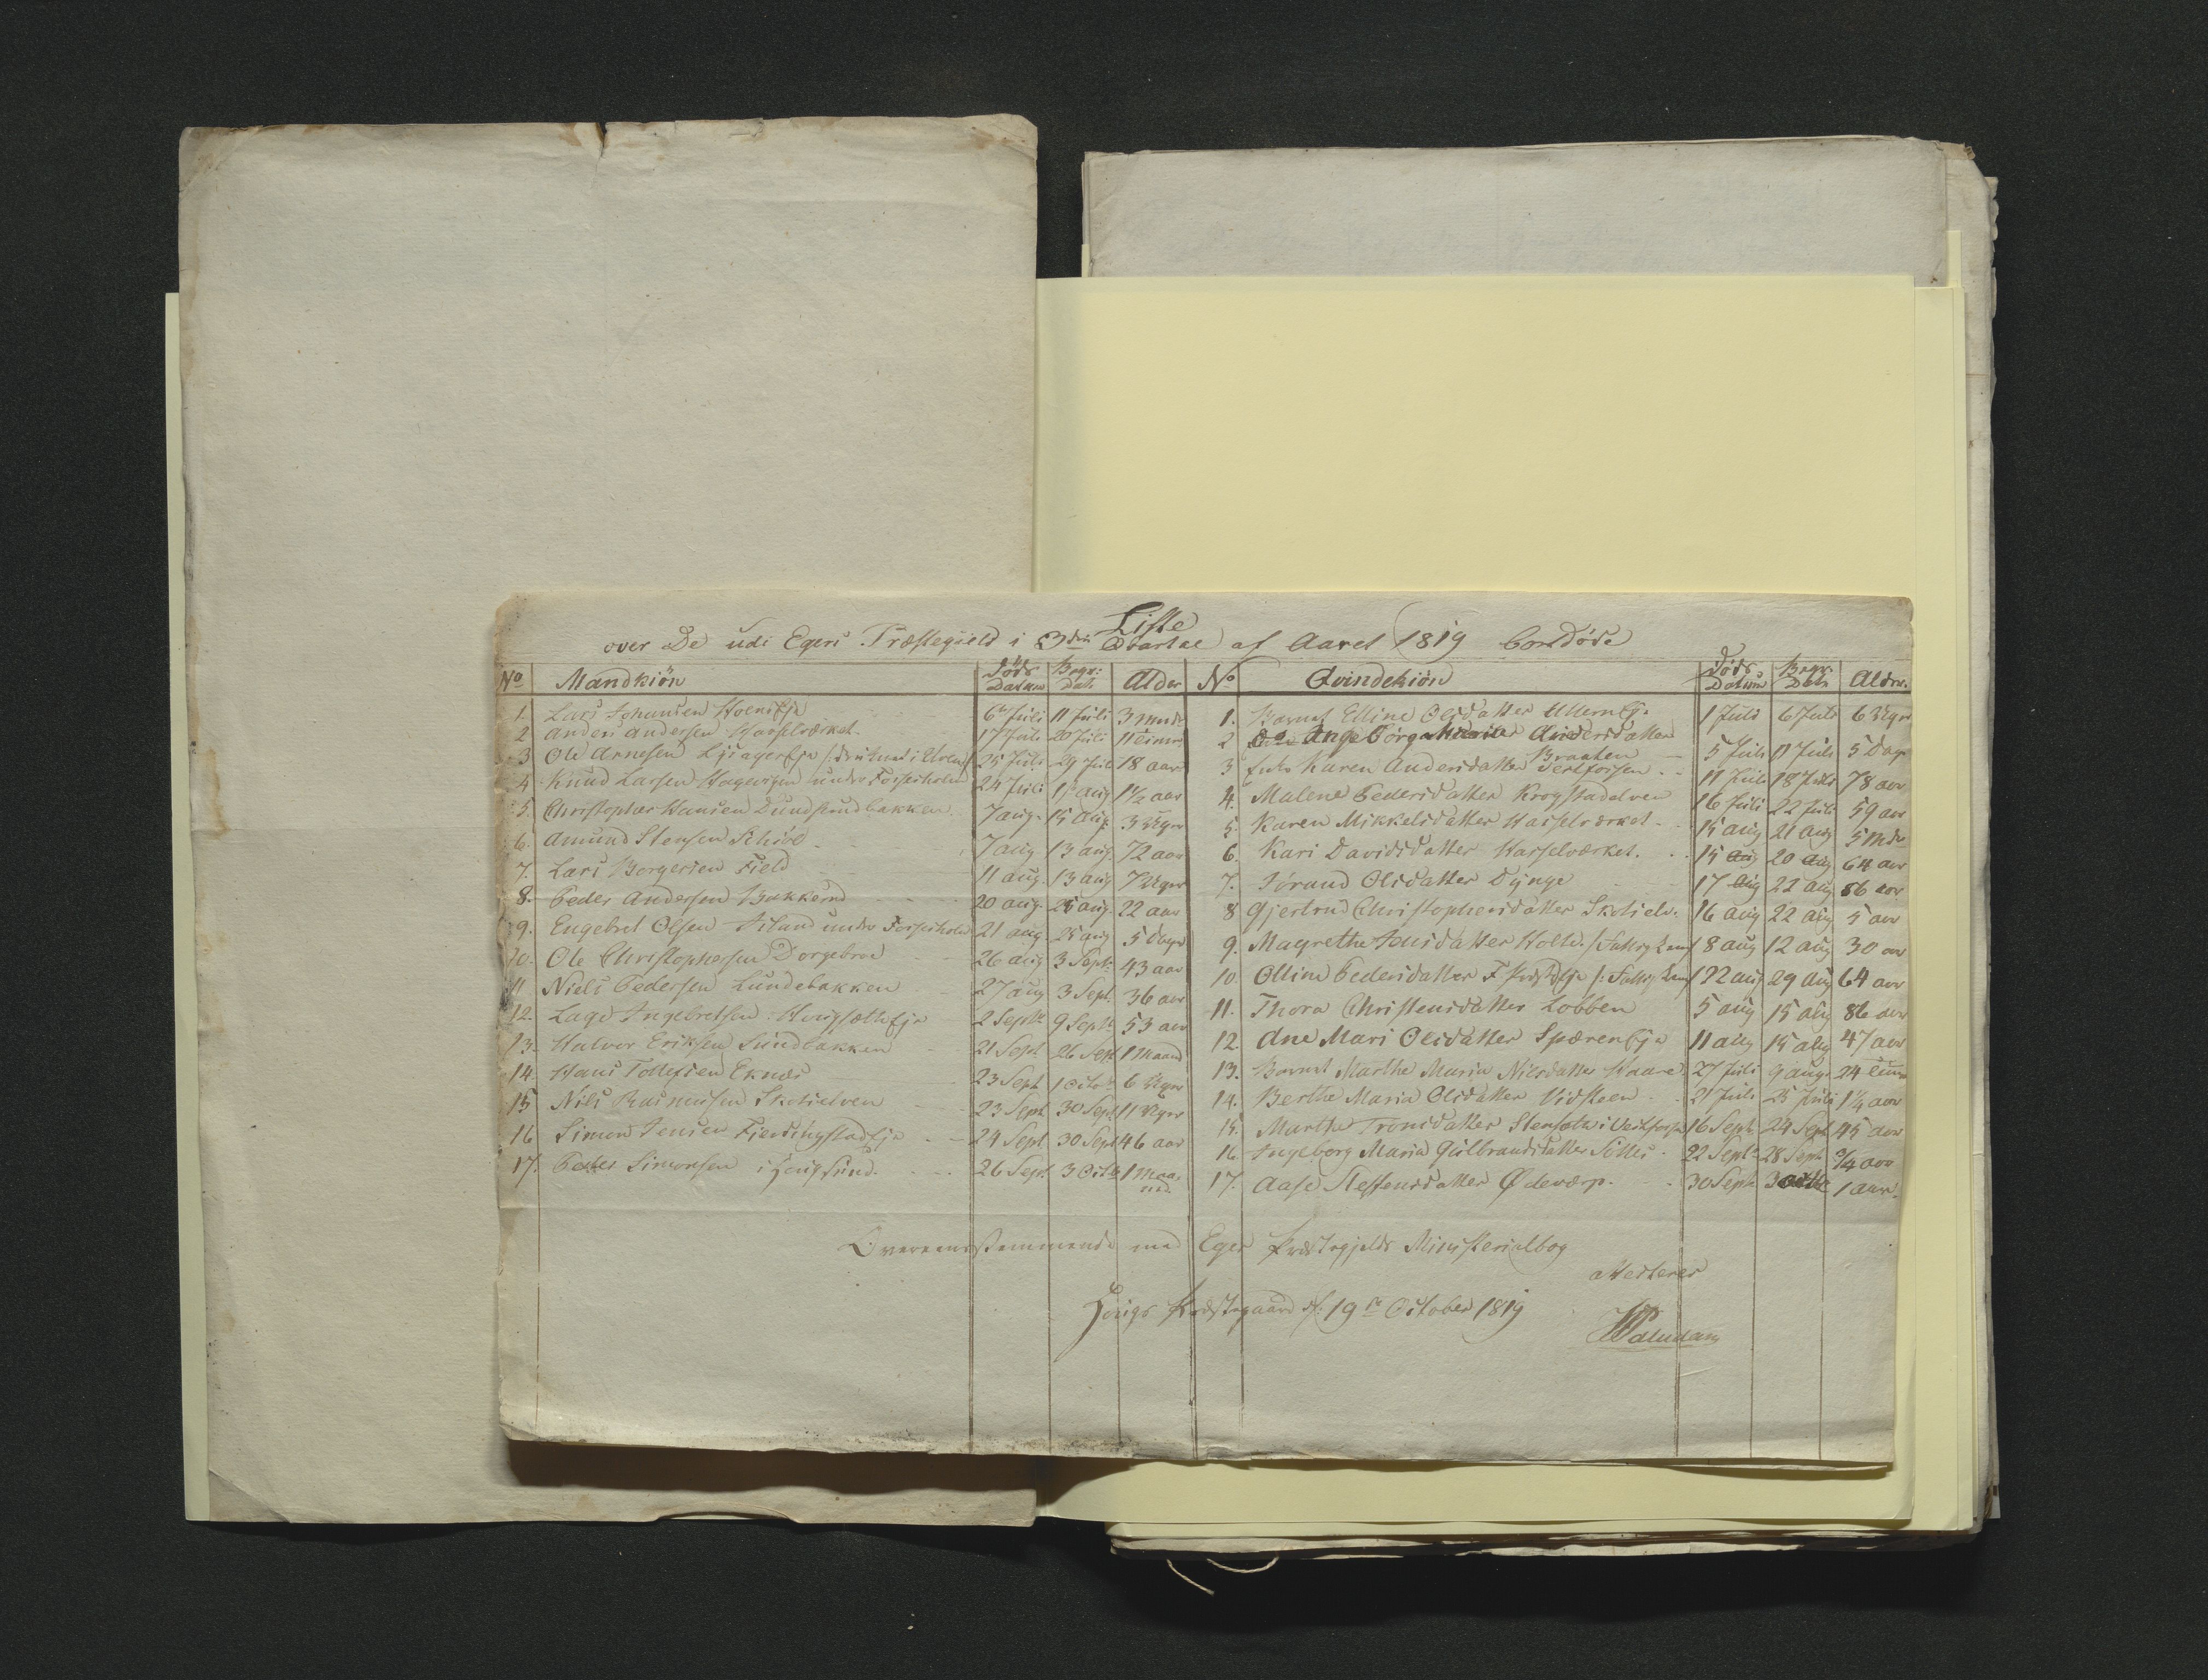 Liste
over De udi Egers Præstegield i 3die Qvartal af Aaret 1819 bortdøde
No Mandkiøn Døds Datum Begr: Dat: Alder No Qvindekiøn Døds Datum Begr: Dat: Alder
1. Lars Johansen Hoens Eje 6te Juli 11 Juli 3 mndr 1. Barnet Elline Olsdatter Ullern Eje 1 Juli 6 Juli 6 Uger
2 Anders Andersen Hasselværket 17 Juli 20 Juli 11 Timer 2 Do Ingeborg Maria Andersdatter Braaten 5 Juli 11 Juli 5 Dage
3 Ole Arnesen 25 Juli 29 Juli 18 aar 3 Enke Karen Andersdatter Vestfossen 11 Juli 18 Juli 78 aar
4 Knud Larsen Hagevigen under Fossesholm 24 Juli 1 Aug 1½ aar 4. Malene Pedersdatter Krogstadelven 16 Juli 22 Juli 59 aar
5. Christopher Hansen bakken 7 aug. 15 Aug 3 Uger 5. Karen Mikkelsdatter Hasselværket 15 aug 21 aug 5 Mdr
6. Amund Stensen 7 aug 13 aug. 72 aar 6. Kari Davidsdatter Hasselværket. 15 Aug 20 Aug 64 aar
7. Lars Borgersen Field 11 aug. 13 aug 7 Uger 7. Jørand Olsdatter Dynge 17 Aug 22 aug 86 aar
8. Peder Andersen Bakkerud 20 aug. 25 aug. 22 aar 8 Gjertrud Christophersdatter Skotselv. 16 aug 22 aug 5 aar
9. Engebret Olsen under Fossesholm 21 aug 25 aug 5 Dage 9. Magrethe Jensdatter Holte /: Fattig Lem 8 aug 12 aug 30 aar
10. Ole Christophersen Dorgebroe 26 aug 3 Sept: 43 aar 10. Olline Pedersdatter /: Fattig Lem 22 aug 29 aug 64 aar
11 Niels Pedersen Lundebakken 27 aug 3 Sept. 36 aar 11. Thora Christensdatter Lobben 5 aug 15 aug 86 aar
12. Lage Ingebretsen Eje 2 Septb 9 Septb 53 aar 12 Ane Mari Olsdatter Spæren Eje 11 aug 15 aug 47 aar
13. Halvor Eriksen Sundbakken 21 Sept 26 Sept 1 Maaned 13. Barnet Marthe Maria Nilsdatter Kaare 27 Juli 9 aug. 24 Timer
14. Hans Tollefsen Eknæs 23 Sept 1 Octob 6 Uger 14. Berthe Maria Olsdatter Vidsteen 21 Juli 25 Juli 1¼ aar
15 Nils Rasmusen Skotselven 23 Sept 30 Sept 11 Uger 15. Marthe Tronsdatter Stensæth i Vestfossen 16 Sept 24 Sept 45 aar
16 Simon Jensen Fierdingstad Eje 24 Sept 30 Sept 46 aar 16 Ingeborg Maria Gulbrandsdatter 22 Septb 28 Sept ¾ aar
17. Peder Simonsen i Hougsund. 26 Sept. 3 Octb 1 Maaned. 17. Aase Steffensdatter Ødeværp. 30 Sept 3 Octb 1 aar.
Overeensstemmende med Eger Præstegjelds Ministerialbog
attesteres
Hougs Præstegaard d: 19de October 1819
Paludan